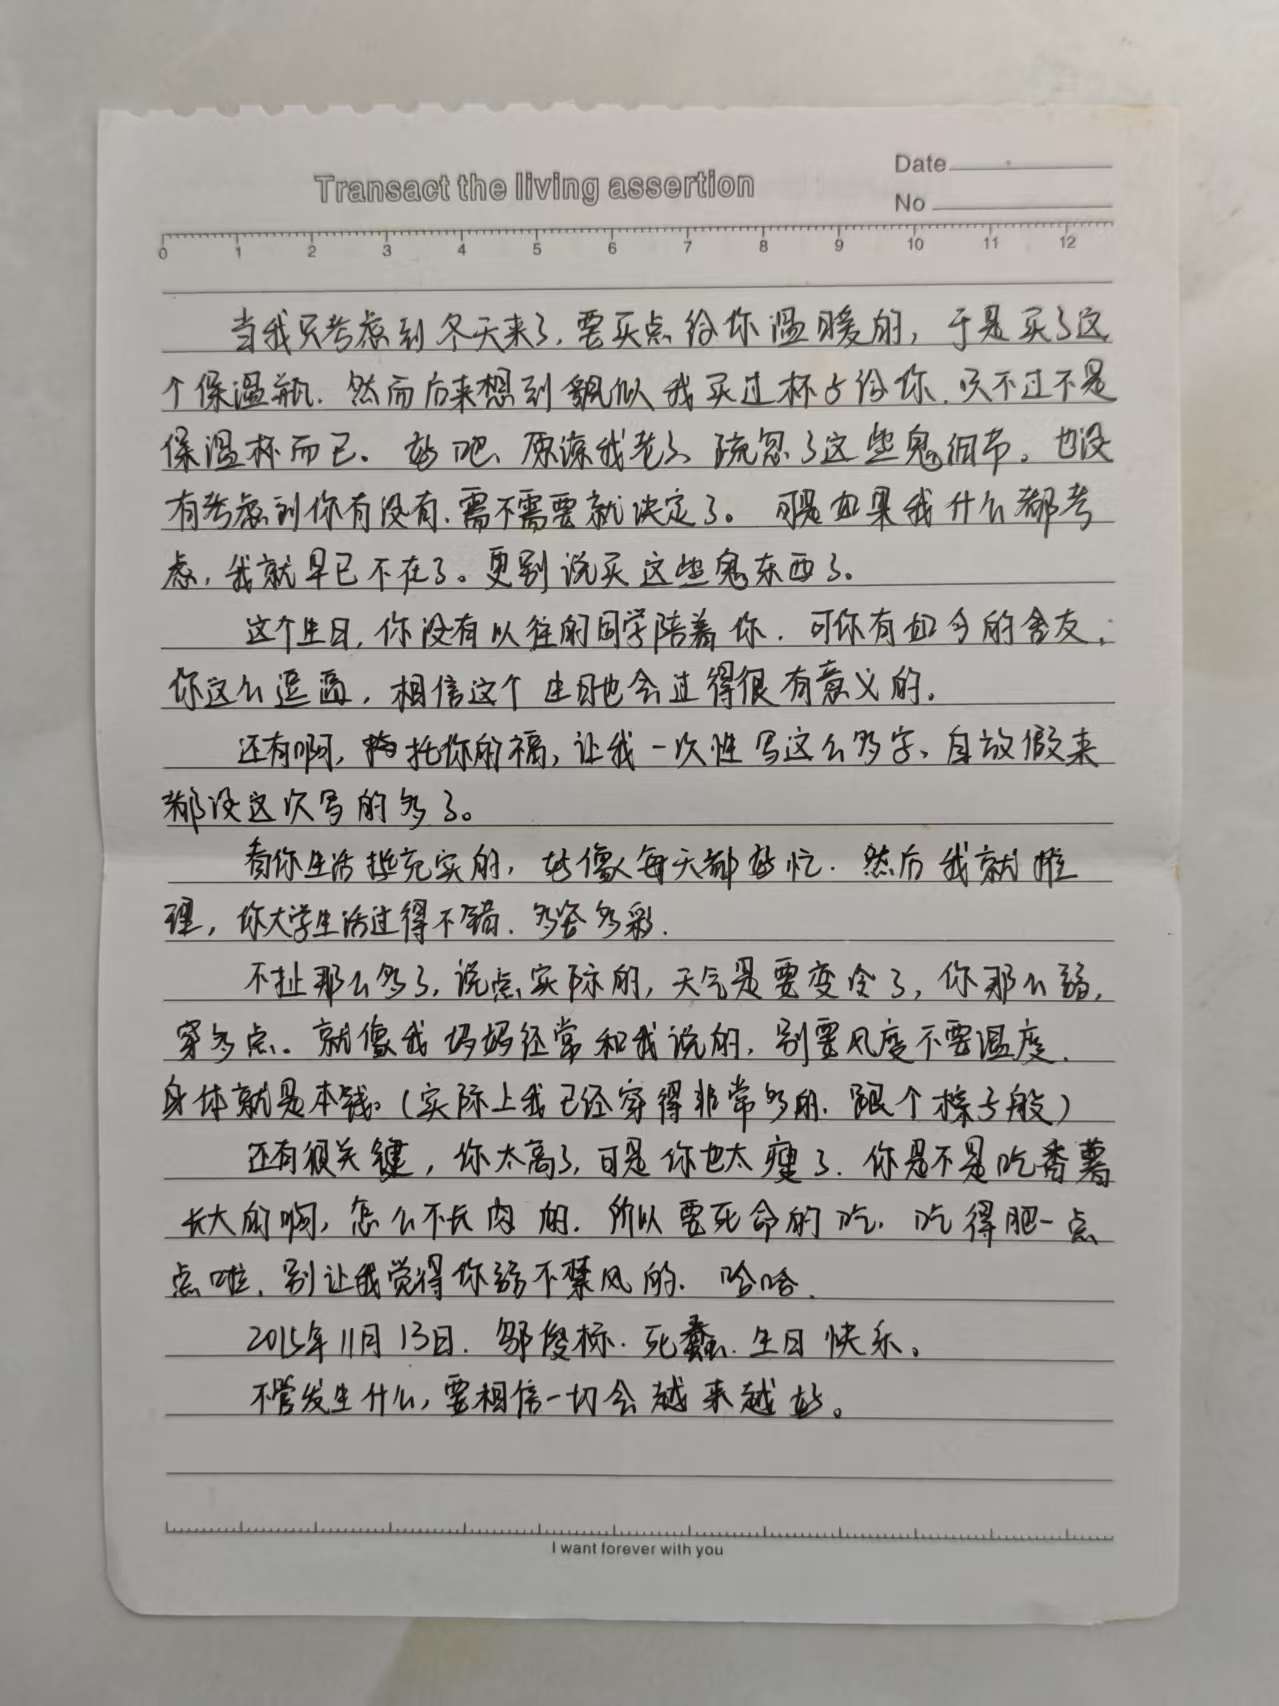 Transact the living assertion
Date
No
0 1 2 3 4 5 6 7 8 9 10 11 12
当我只考虑到冬天来了,要买点给你温暖的,于是买了这
个保温瓶.然而后来想到貌似我买过杯子给你.只不过不是
保温杯而已。好吧、原谅我老了、疏忽了这些鬼细节。也没
有考虑到你有没有.需不需要就决定了。可是如果我什么都考
虑,我就早已不在了。更别说买这些鬼东西了。
这个生日,你没有以往的同学陪着你.可你有如今的舍友.
你这么逗逼,相信这个生日也会过得很有意义的.
还有啊,托你的福,让我一次性写这么多字、自放假来
都没这次写的多了。
看你生活挺充实的,好像每天都好忙.然后我就推
理,你大学生活过得不错.多姿多彩.
不扯那么多了,说点实际的,天气是要变冷了,你那么弱,
穿多点。就像我妈妈经常和我说的,别要风度不要温度.
身体就是本钱。(实际上我已经穿得非常多的.跟个粽子般)
还有很关键,你太高了,可是你也太瘦了.你是不是吃香薯
长大的啊,怎么不长肉的.所以要死命的吃.吃得肥一点
点啦.别让我觉得你弱不禁风的.哈哈.
2015年11月13日.邹俊标.死蠢.生日快乐。
不管发生什么,要相信一切会越来越好。
I want forever with you